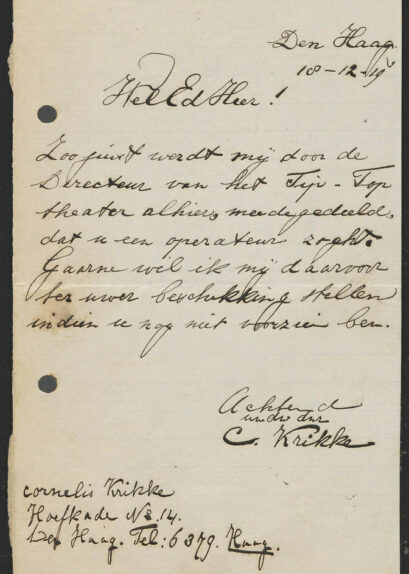 Den Haag.
18-12-19
Wel Ed Heer!
Zoo juist werdt mij door de
Directeur van het Tip-Top
theater alhier, medegedeeld,
dat u een operateur zocht.
Gaarne wil ik mij daarvoor
ter uwer beschikking stellen
indien u nog niet voorzien ben.
Achtend
uw dw dnr
C. Krikke
Cornelis Krikke
Hoefkade No. 14.
Den Haag. Tel: 6379. Haag.